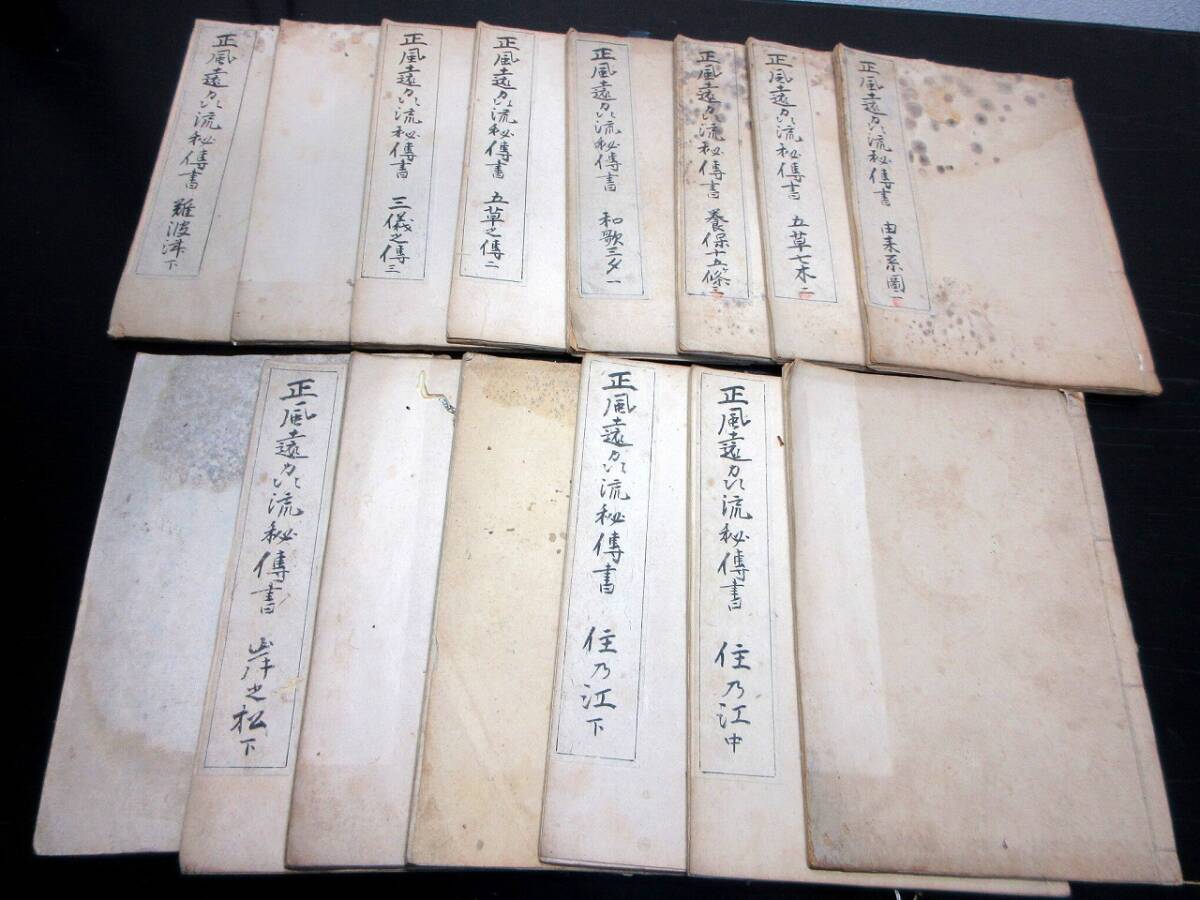 正風遠州流秘傳書 由来系圖一
正風遠州流秘傳書 五草七木二
正風遠州流秘傳書 養保十五ヶ條三
正風遠州流秘傳書 和歌三夕一
正風遠州流秘傳書 五草之傳二
正風遠州流秘傳書 三儀之傳三
正風遠州流秘傳書 難波津下
正風遠州流秘傳書 住乃江中
正風遠州流秘傳書 住乃江下
正風遠州流秘傳書 岸之松下